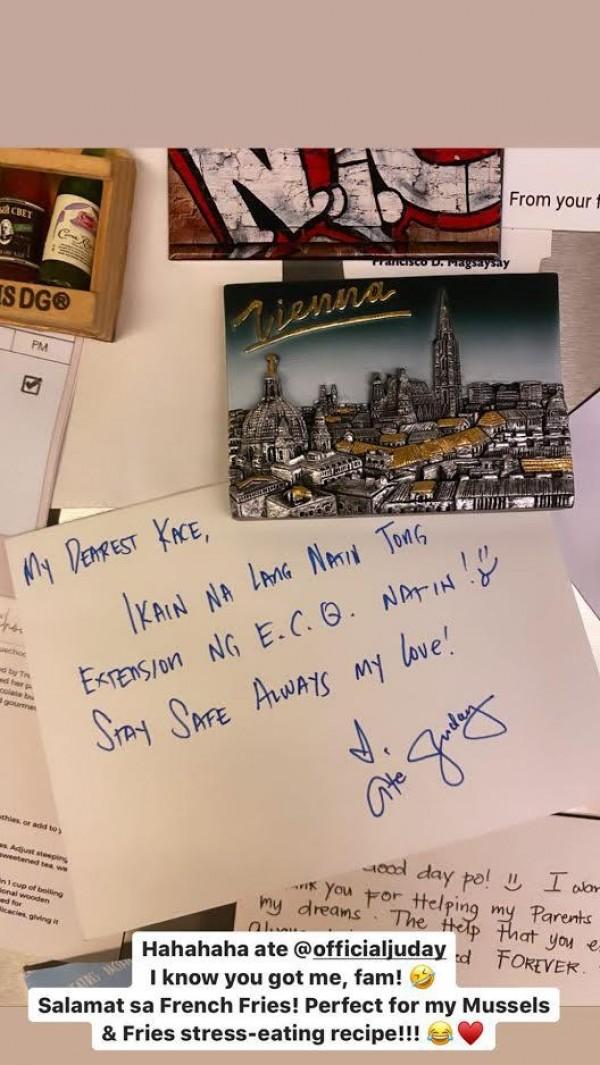 From your
Francisco D. Magsaysay
IS DG®
PM
Vienna
MY DEAREST KACE,
IKAIN NA LANG NATIN TONG
EXTENSION NG E.C.Q. NATIN!
STAY SAFE ALWAYS MY LOVE!
Ate Juday
or add to
Adjust steeping
sweetened tea,
in 1 cup of boiling
wooden
giving it
Good day po! I
you FOR Helping my Parents
my dreams. The Help that you
FOREVER.
Hahahaha ate @officialjuday
I know you got me, fam! 🤣
Salamat sa French Fries! Perfect for my Mussels
& Fries stress-eating recipe!!! 😂♥️